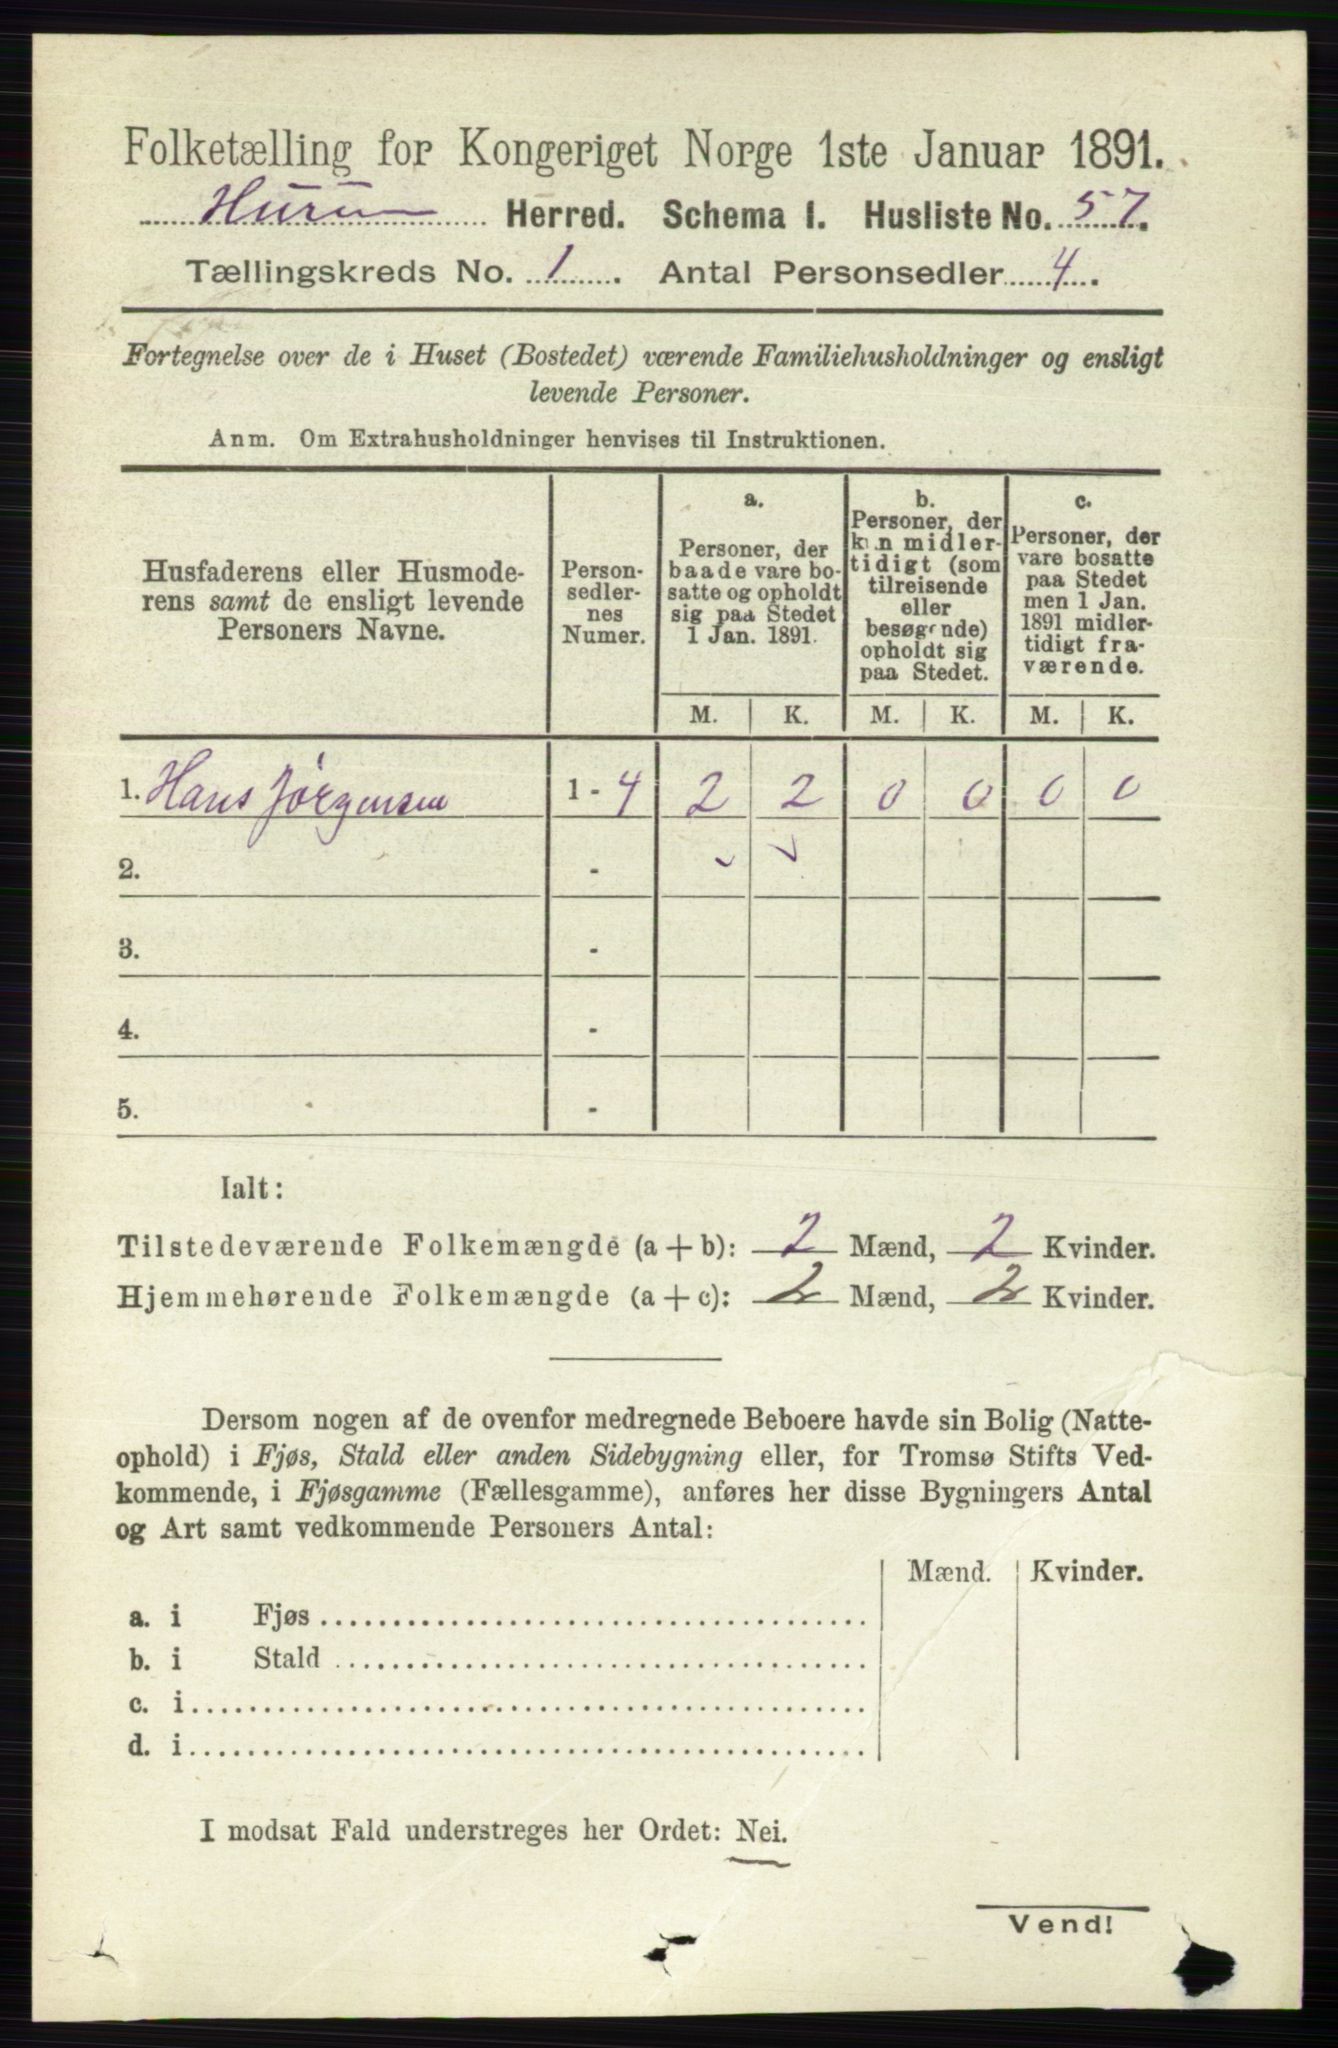 Folketælling for Kongeriget Norge 1ste Januar 1891.
Hurum Herred. Schema I. Husliste No. 57.
Tællingskreds No. 1. Antal Personsedler 4.
Fortegnelse over de i Huset (Bostedet) værende Familiehusholdninger og ensligt
levende Personer.
Anm. Om Extrahusholdninger henvises til Instruktionen.
Husfaderens eller Husmode-
rens samt de ensligt levende
Personers Navne.
Person-
sedler-
nes
Numer.
a.
Personer, der
baade vare bo-
satte og opholdt
sig paa Stedet
1 Jan. 1891.
b.
Personer, der
kun midler-
tidigt (som
tilreisende
eller
besøgende)
opholdt sig
paa Stedet.
c.
Personer, der
vare bosatte
paa Stedet
men 1 Jan.
1891 midler-
tidigt fra-
værende.
M. K. M. K. M. K.
1. Hans Jörgensen 1 - 4 2 2 0 0 0 0
2. -
3. -
4. -
5. -
Ialt:
Tilstedeværende Folkemængde (a + b): 2 Mænd, 2 Kvinder.
Hjemmehørende Folkemængde (a + c): 2 Mænd, 2 Kvinder.
Dersom nogen af de ovenfor medregnede Beboere havde sin Bolig (Natte-
ophold) i Fjøs, Stald eller anden Sidebygning eller, for Tromsø Stifts Ved-
kommende, i Fjøsgamme (Fællesgamme), anføres her disse Bygningers Antal
og Art samt vedkommende Personers Antal:
Mænd. Kvinder.
a. i Fjøs
b. i Stald
c. i
d. i
I modsat Fald understreges her Ordet: Nei.
Vend!